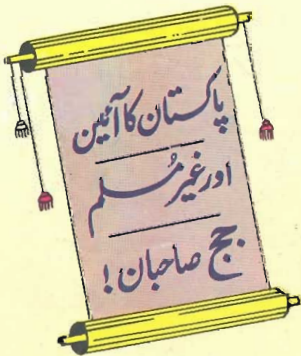 پاکستان کا آئین
اور غیر مُسلم
جج صاحبان!